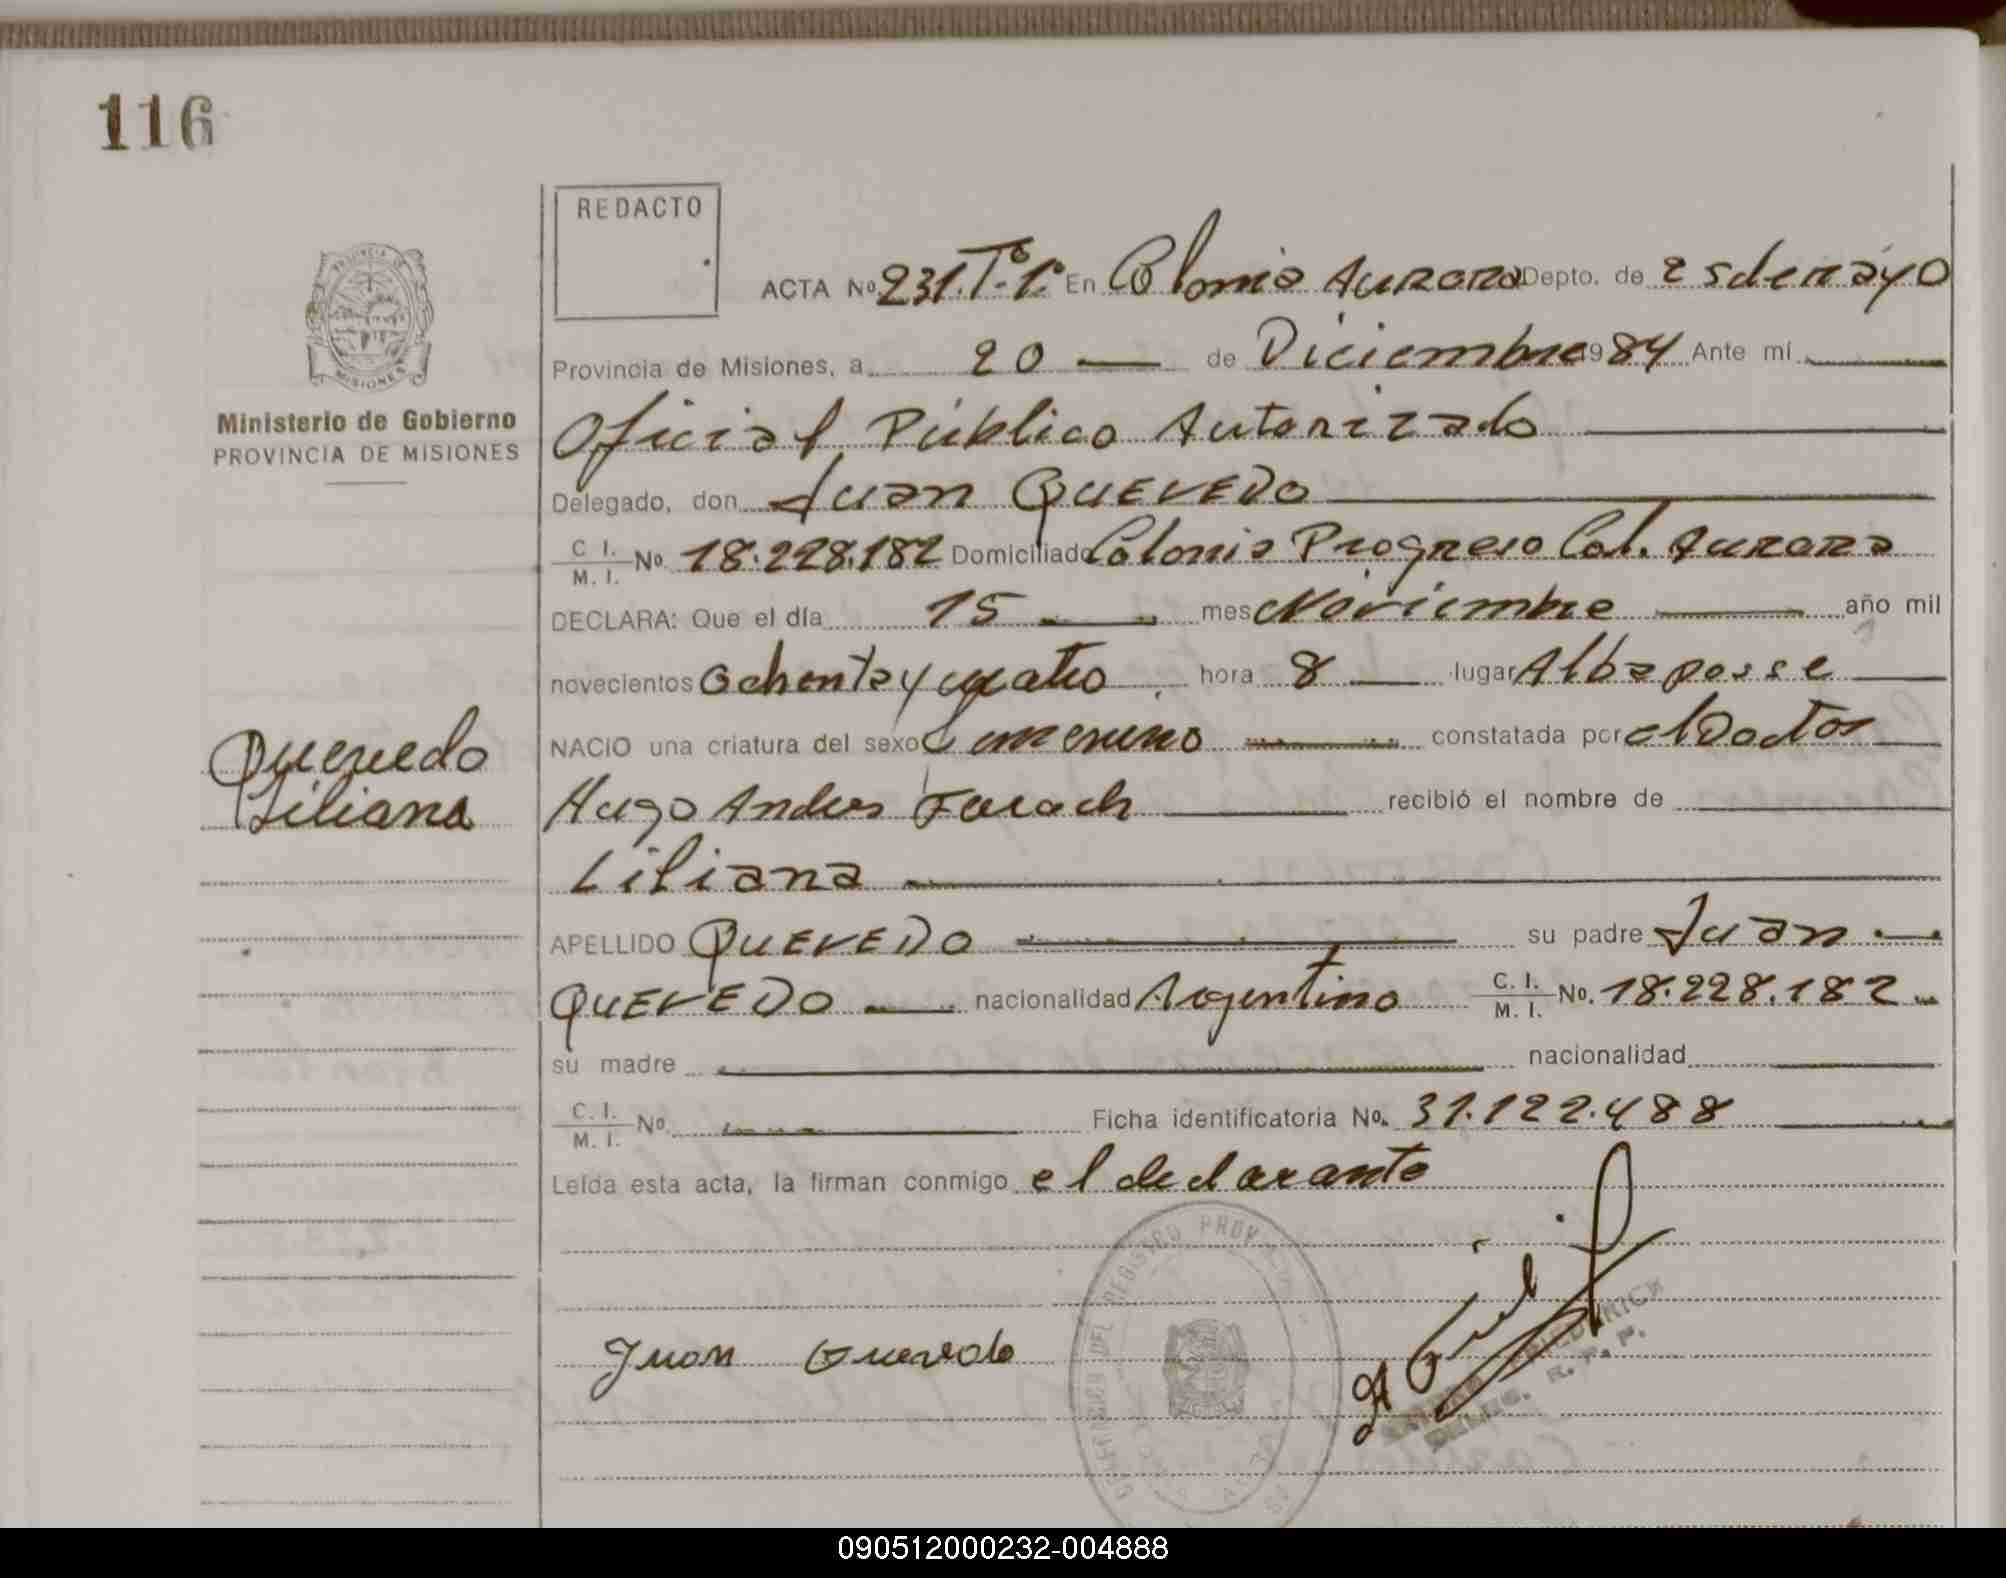 116
REDACTO
PROVINCIA DE
MISIONES
Ministerio de Gobierno
PROVINCIA DE MISIONES
Quevedo
Liliana
ACTA Nº 231.Tº.1º En Colonia Aurora Depto. de 25 de mayo
Provincia de Misiones, a 20 — de Diciembre 1984 Ante mí
Oficial Público Autorizado
Delegado, don Juan QUEVEDO
C. I. / M. I. Nº 18.228.182 Domiciliado Colonia Progreso Col. Aurora
DECLARA: Que el día 15 mes Noviembre año mil
novecientos Ochenta y cuatro hora 8 lugar Alba posse
NACIO una criatura del sexo femenino constatada por el Doctor
Hugo Andres Farach recibió el nombre de
Liliana
APELLIDO QUEVEDO su padre Juan
QUEVEDO nacionalidad Argentino C. I. / M. I. Nº. 18.228.182
su madre nacionalidad
C. I. / M. I. Nº Ficha identificatoria Nº. 31.122.488
Leída esta acta, la firman conmigo el declarante
DEL REGISTRO PROV
Juan Quevedo
R. P. P.
090512000232-004888